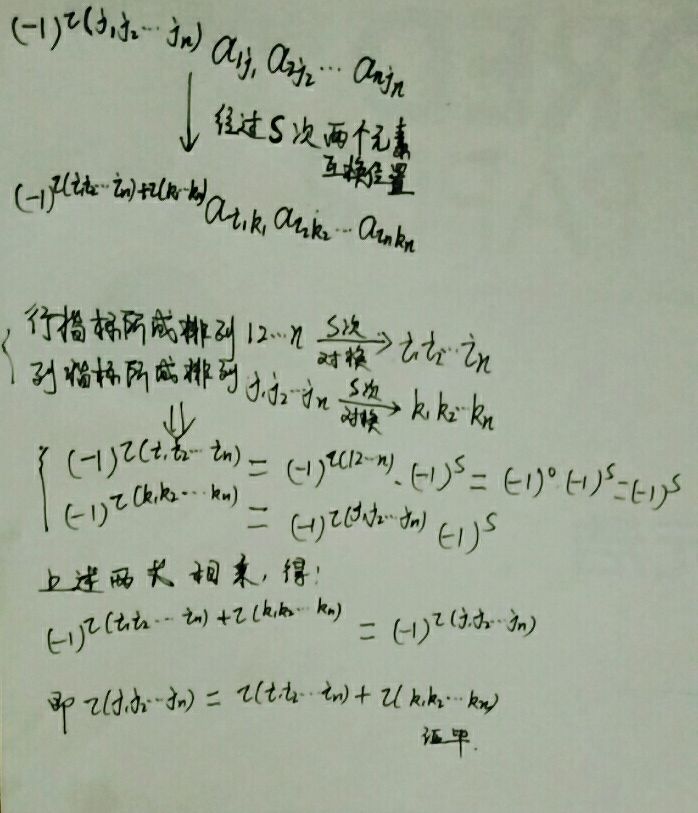 (-1)^τ(j₁j₂⋯jₙ) a₁ⱼ₁ a₂ⱼ₂ ⋯ aₙⱼₙ
↓ 经过S次两个元素
互换位置
(-1)^τ(i₁i₂⋯iₙ)+τ(k₁⋯kₙ) a_i₁k₁ a_i₂k₂ ⋯ a_iₙkₙ
{ 行指标所成排列 12⋯n —S次 对换→ i₁i₂⋯iₙ
列指标所成排列 j₁j₂⋯jₙ —S次 对换→ k₁k₂⋯kₙ
⇓
{ (-1)^τ(i₁i₂⋯iₙ) = (-1)^τ(12⋯n)·(-1)^S = (-1)^0·(-1)^S = (-1)^S
(-1)^τ(k₁k₂⋯kₙ) = (-1)^τ(j₁j₂⋯jₙ) (-1)^S
上述两式相乘,得:
(-1)^τ(i₁i₂⋯iₙ)+τ(k₁k₂⋯kₙ) = (-1)^τ(j₁j₂⋯jₙ)
即 τ(j₁j₂⋯jₙ) = τ(i₁i₂⋯iₙ) + τ(k₁k₂⋯kₙ)
证毕.